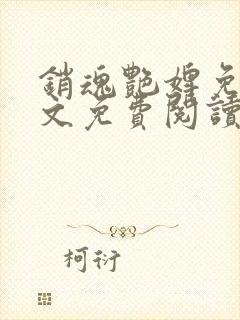 銷魂艷婢免
文免費閱讀
柯衍